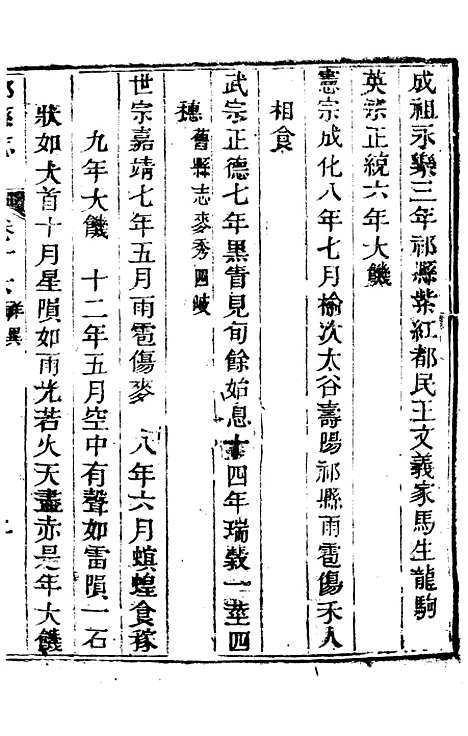 成祖永樂三年祁縣紫紅都民王文義家馬生龍駒
英宗正統六年大饑
憲宗成化八年七月榆次太谷壽陽祁縣雨雹傷禾人
相食
武宗正德七年黑眚見旬餘始息 十四年瑞穀一莖四
穗舊縣志麥秀四岐
世宗嘉靖七年五月雨雹傷麥 八年六月螟蝗食稼
九年大饑 十二年五月空中有聲如雷隕一石
狀如犬首十月星隕如雨光若火天盡赤是年大饑
祥異